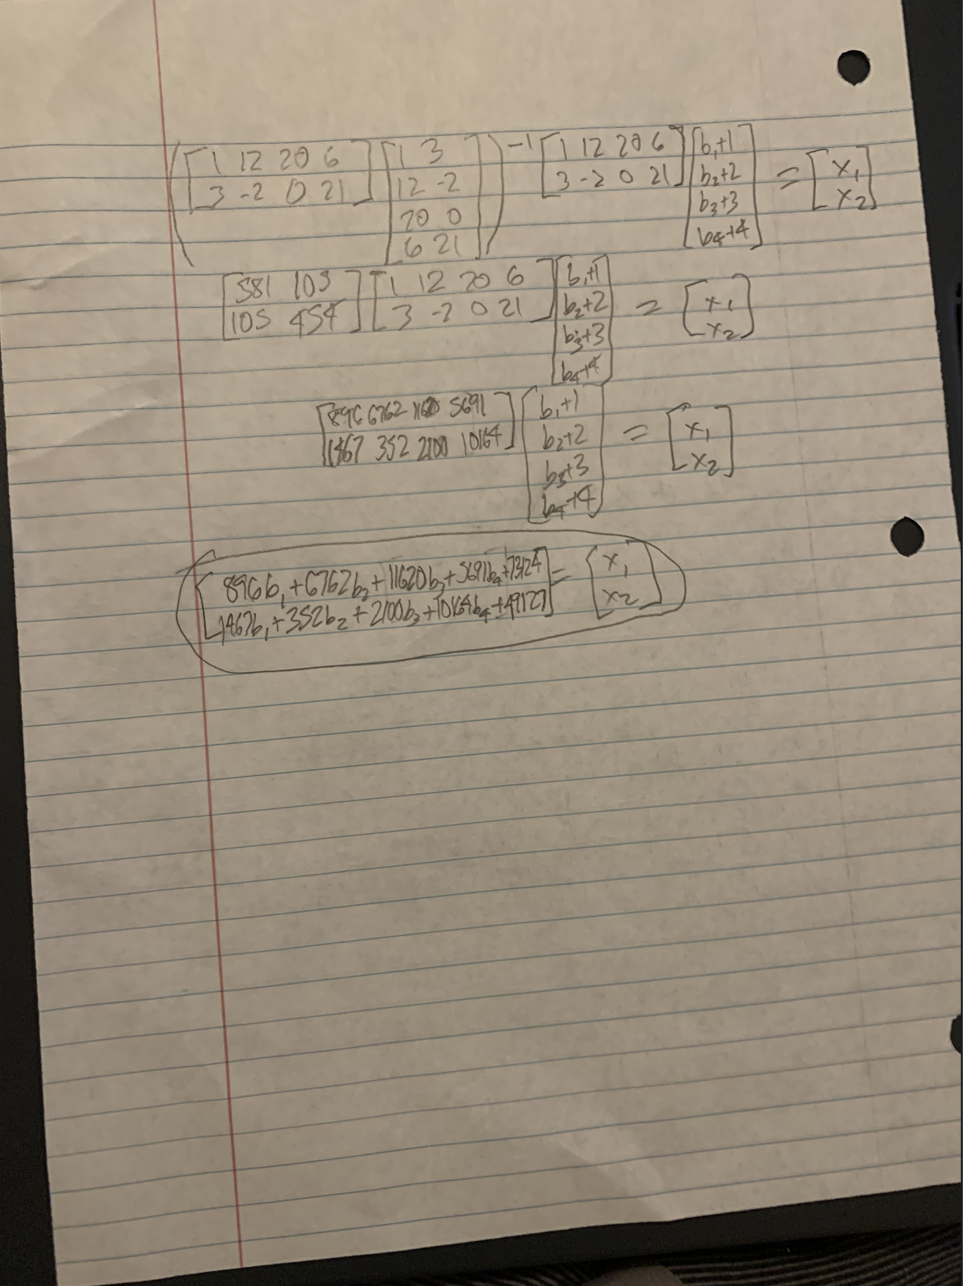 ([1 12 20 6; 3 -2 0 21][1 3; 12 -2; 20 0; 6 21])⁻¹ [1 12 20 6; 3 -2 0 21][b₁+1; b₂+2; b₃+3; b₄+4] = [x₁; x₂]
[581 105; 105 454][1 12 20 6; 3 -2 0 21][b₁+1; b₂+2; b₃+3; b₄+4] = [x₁; x₂]
[896 6762 11620 5691; 1467 352 2100 10164][b₁+1; b₂+2; b₃+3; b₄+4] = [x₁; x₂]
[896b₁+6762b₂+11620b₃+5691b₄+73124; 1467b₁+352b₂+2100b₃+10164b₄+49127] = [x₁; x₂]